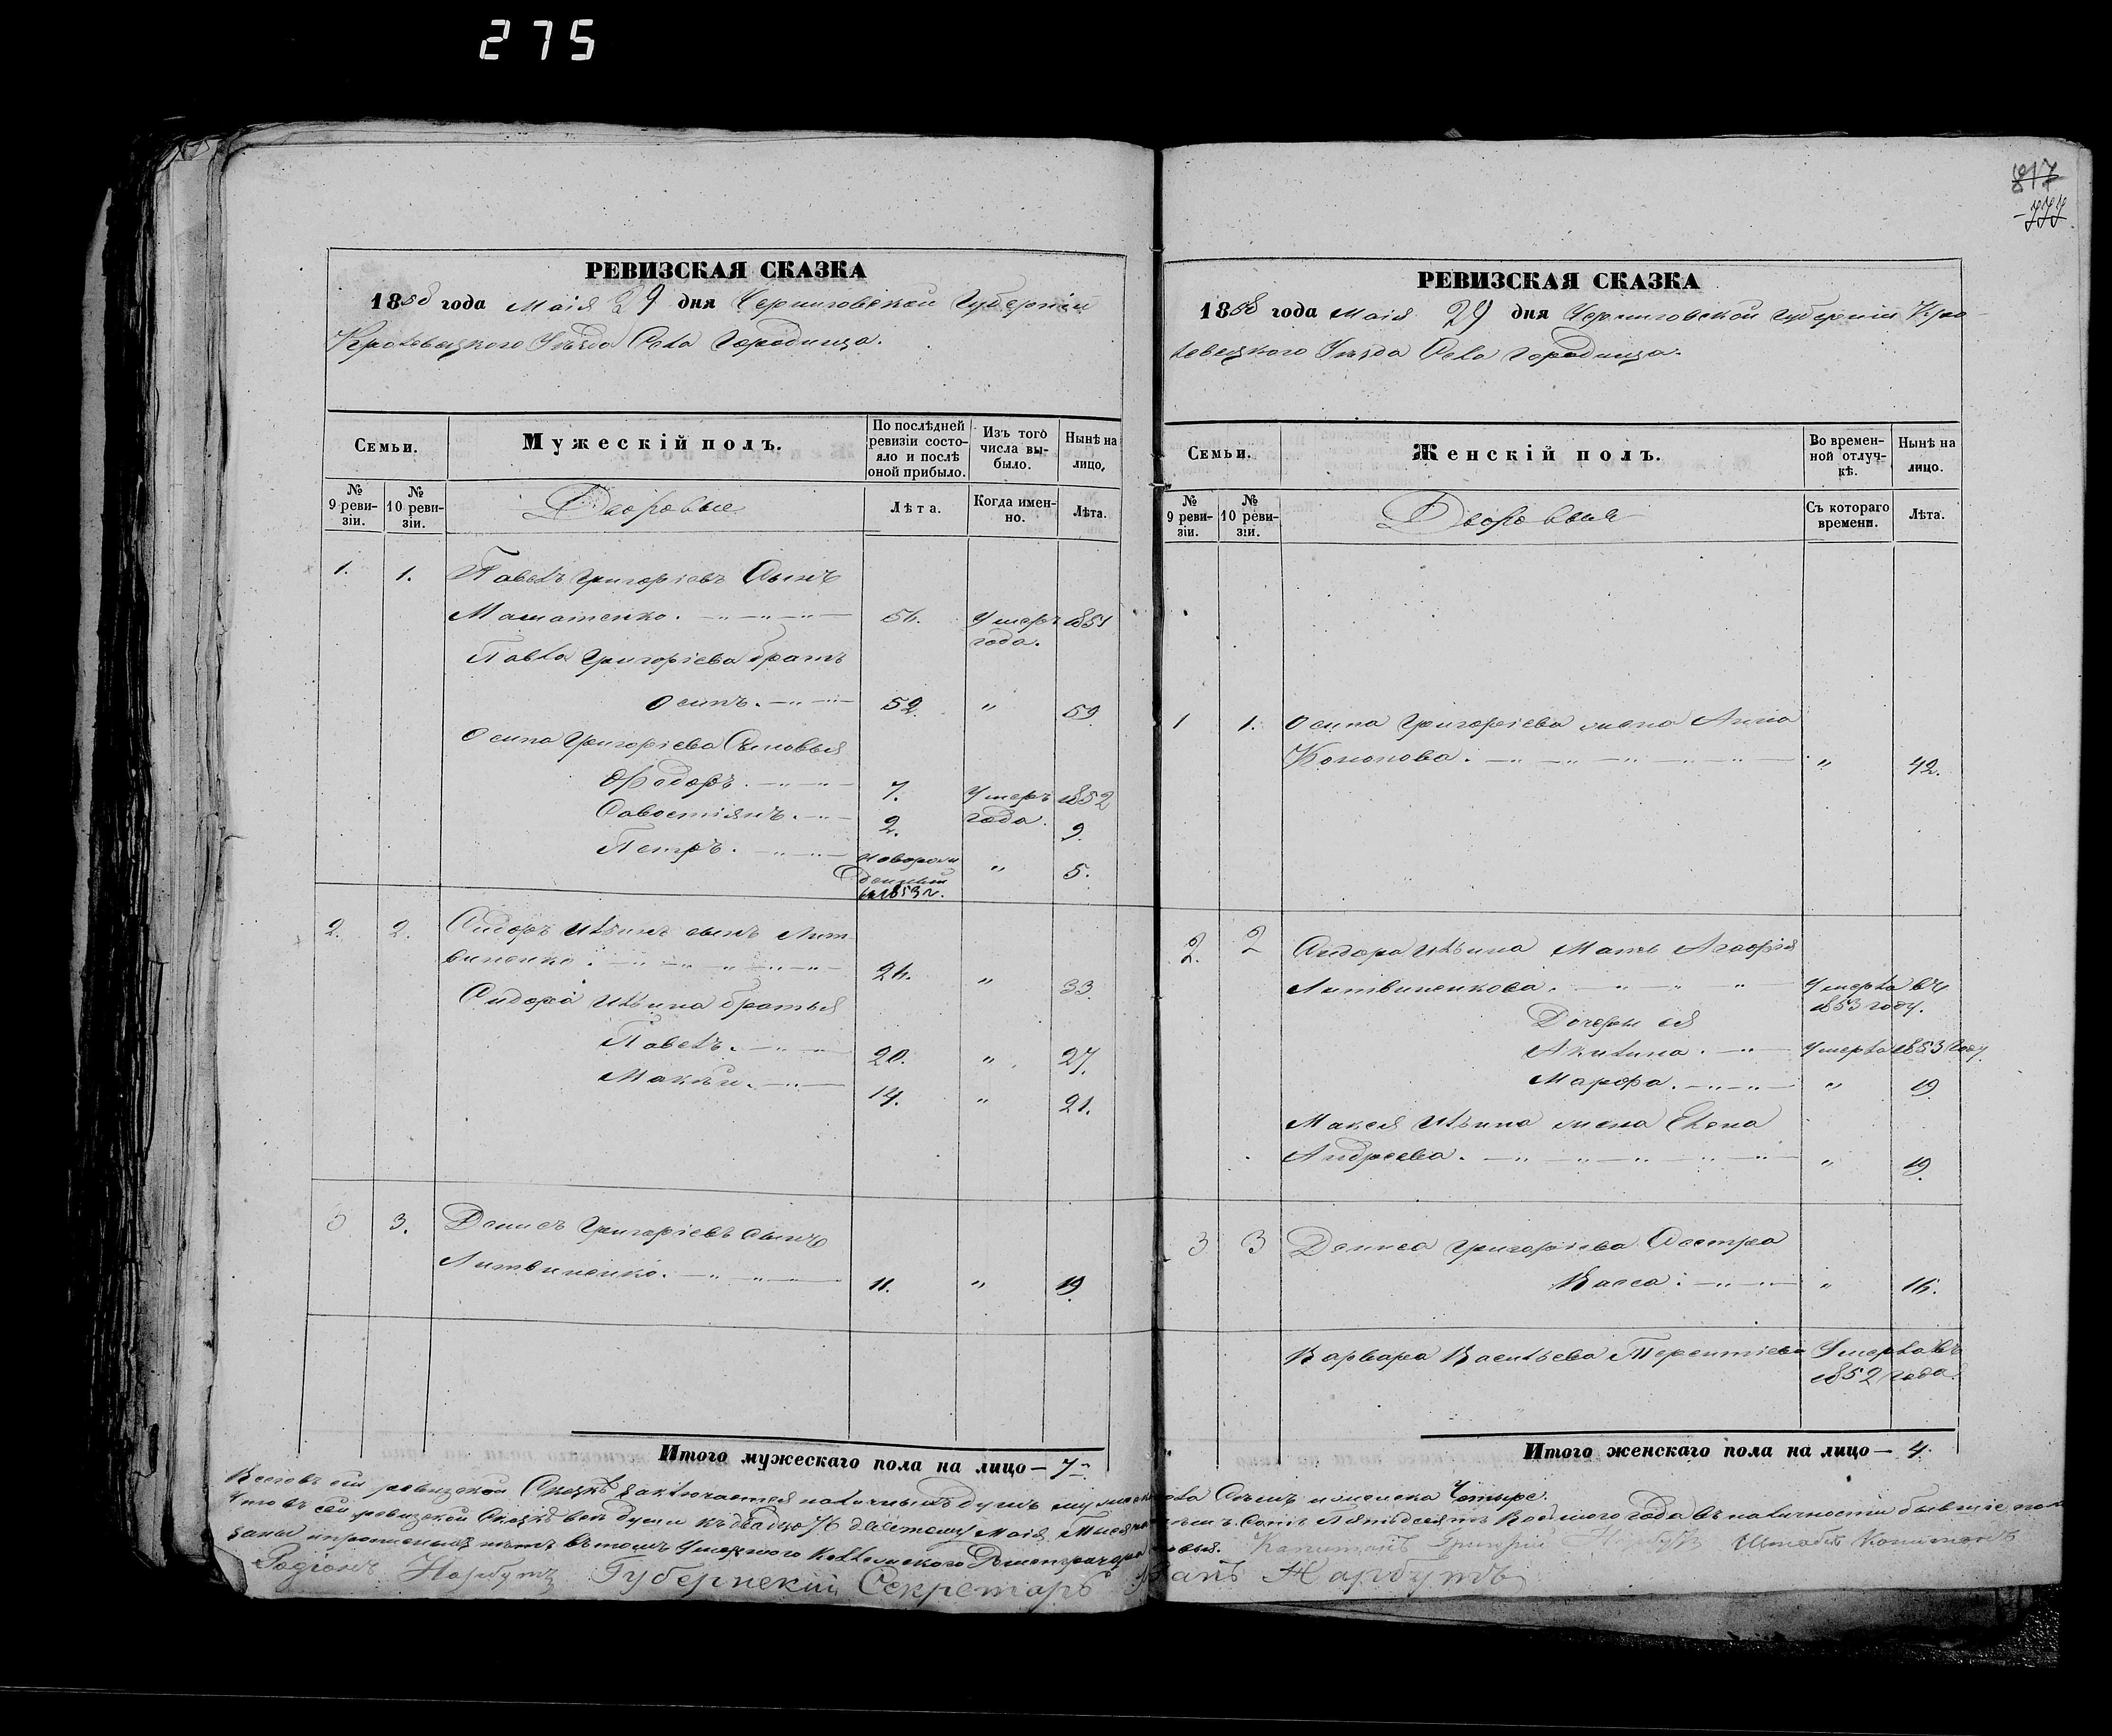 275
817
777
РЕВИЗСКАЯ СКАЗКА
1858 года Маія 29 дня Черниговской Губерніи
Кролевецкого Уѣзда Села Городища.
Семьи.
Мужескій полъ.
По послѣдней ревизіи состояло и послѣ оной прибыло.
Изъ того числа выбыло.
Нынѣ на лицо,
№ 9 ревизіи.
№ 10 ревизіи.
Дворовые
Лѣта.
Когда именно.
Лѣта.
1. 1. Павелъ Григорьевъ Сынъ
Машатенко. 56. Умеръ 1851
года.
Павла Григорьева братъ
Осипъ. 52. " 59.
Осипа Григорьева Сыновья
Ѳеодоръ. 7. Умеръ 1852
Савостіянъ. 2. года. 9.
Петръ. новорож
денный " 5.
въ 1853 г.
2. 2. Сидоръ Ильинъ сынъ Лит
виненко. 26. " 33.
Сидора Ильина братья
Павелъ. 20. " 27.
Макѣй. 14. " 21.
3 3. Денисъ Григорьевъ сынъ
Литвиненко. 11. " 19.
Итого мужескаго пола на лицо — 7
РЕВИЗСКАЯ СКАЗКА
1858 года Маія 29 дня Черниговской Губерніи Кро
левецкого Уѣзда Села Городища.
Семьи.
Женскій полъ.
Во временной отлучкѣ.
Нынѣ на лицо.
№ 9 ревизіи.
№ 10 ревизіи.
Дворовыя
Съ котораго времени.
Лѣта.
1 1. Осипа Григорьева жена Анна
Кононова. " 42.
2. 2 Сидора Ильина Мать Агафія
Литвиненкова. Умерла въ
1853 году.
Дочери ея
Акилина. Умерла 1853 году.
Марфа. " 19
Макея Ильина жена Елена
Андреева. " 19.
3 3 Дениса Григорьева Сестра
Васса. " 16.
Варвара Васильева Терентіева Умерла въ
1852 года.
Итого женскаго пола на лицо — 4.
Всего въ сей ревизской Сказкѣ заключается наличныхъ душъ мужеска пола Семь и женска Четыре.
Что въ сей ревизской Сказкѣ всѣ души къ двадцать девятому Маія Тысяча восемь сотъ Пятьдесятъ Восьмого года въ наличности бывшіе пока
заны и прописныхъ нѣтъ въ томъ
Капитанъ Григорій Нарбутъ Штабсъ Капитанъ
Родіонъ Нарбутъ Губернскій Секретарь Иванъ Нарбутъ